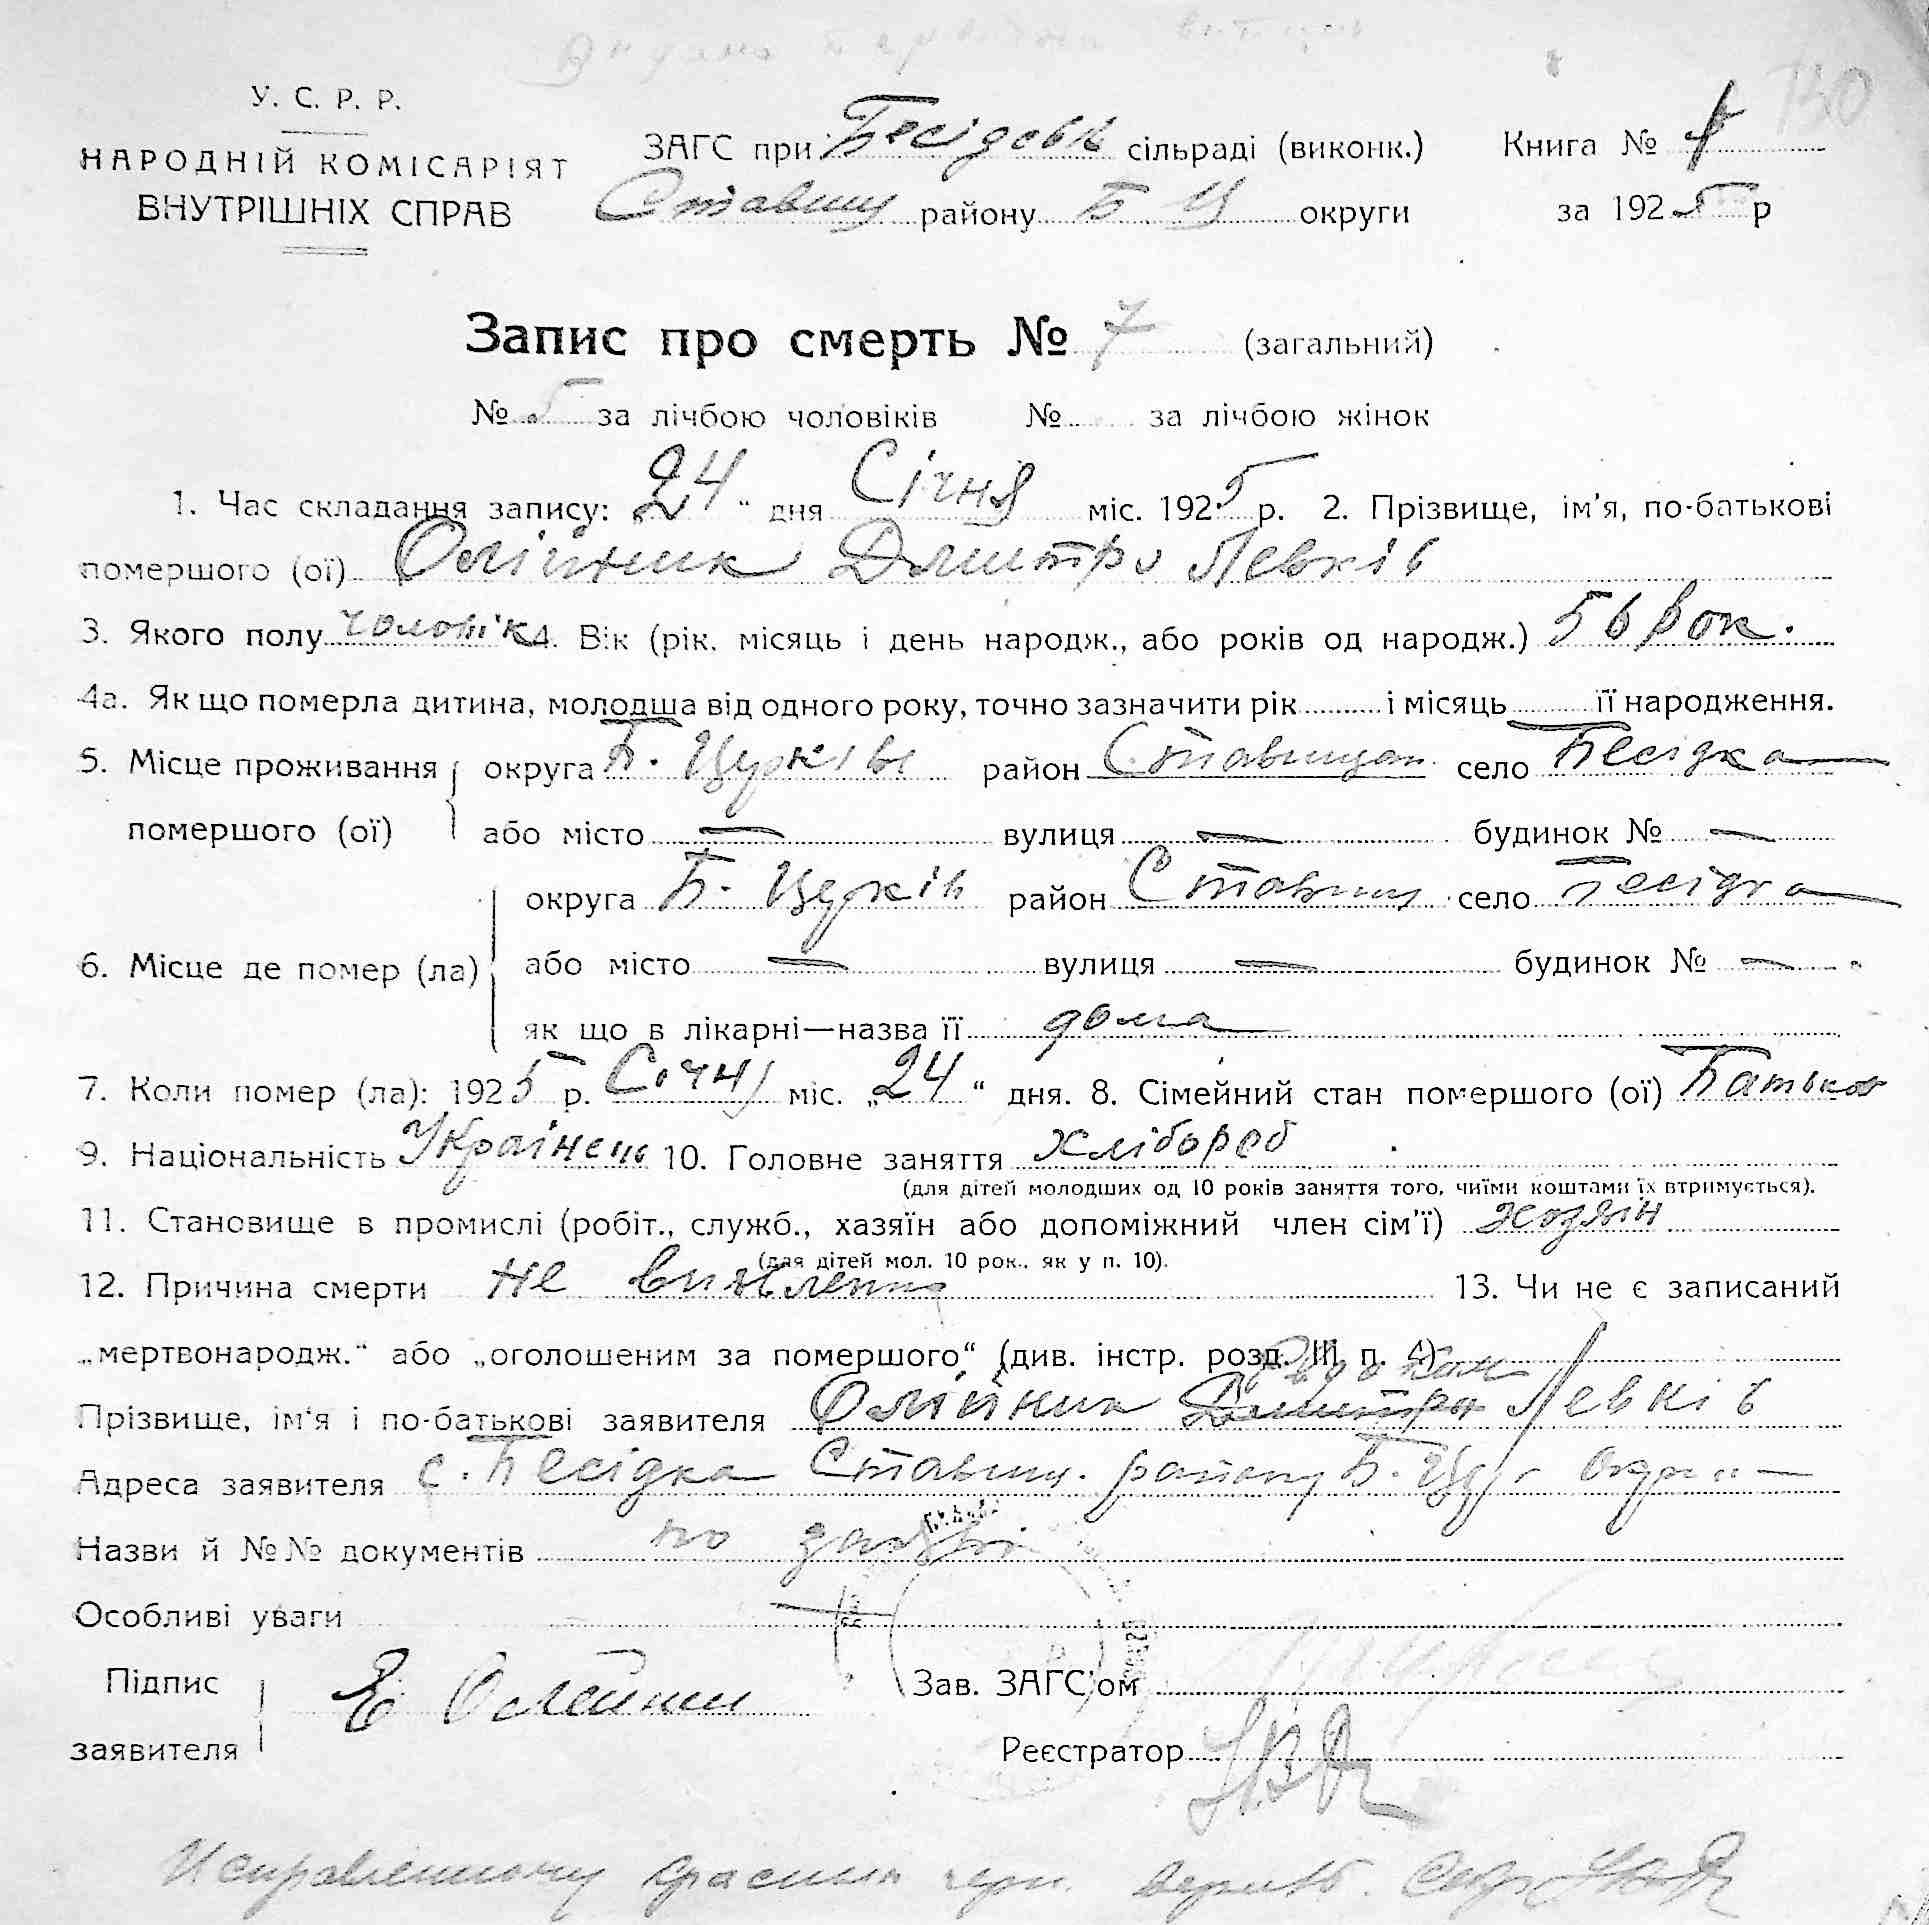 У. С. Р. Р.
НАРОДНІЙ КОМІСАРІЯТ
ВНУТРІШНІХ СПРАВ
ЗАГС при Бесідськ сільраді (виконк.) Книга №
Ставищ району Б Ц округи за 1925 р
130
Запис про смерть № 7 (загальний)
№ 5 за лічбою чоловіків № за лічбою жінок
1. Час складання запису: 24 “ дня Січня міс. 1925 р. 2. Прізвище, ім’я, по-батькові
помершого (ої) Олійник Дмитро Левків
3. Якого полу чоловік 4. Вік (рік, місяць і день народж., або років од народж.) 56 рок.
4а. Як що померла дитина, молодша від одного року, точно зазначити рік і місяць її народження.
5. Місце проживання округа Б. Церків район Ставищан село Бесідка
помершого (ої) або місто — вулиця — будинок № —
округа Б. Церків район Ставищ село Бесідка
6. Місце де помер (ла) або місто — вулиця — будинок № —
як що в лікарні—назва її дома
7. Коли помер (ла): 1925 р. Січня міс. „24“ дня. 8. Сімейний стан помершого (ої) Батьков
9. Національність Українець 10. Головне заняття хлібороб
(для дітей молодших од 10 років заняття того, чиїми коштами їх втримується).
11. Становище в промислі (робіт., служб., хазяїн або допоміжний член сім’ї) хозяїн
(для дітей мол. 10 рок., як у п. 10).
12. Причина смерти не виявленна 13. Чи не є записаний
„мертвонародж.“ або „оголошеним за помершого“ (див. інстр. розд. III, п. 4)
Прізвище, ім’я і по-батькові заявителя Олійник Дмитро Левків
Адреса заявителя с. Бесідка Ставищ. району Б. Цер округи —
Назви й №№ документів по заяві
Особливі уваги
Підпис заявителя Е Олейник Зав. ЗАГС’ом
Реєстратор
Исправленному красным черн. верить. Секр